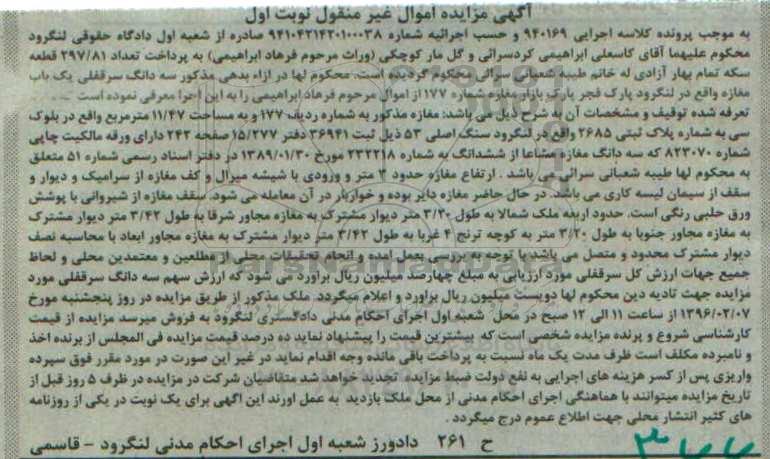 آگهی مزایده اموال غیر منقول نوبت اول
به موجب پرونده کلاسه اجرایی ۹۴۰۱۶۹ و حسب اجرائیه شماره ۹۴۱۰۴۲۱۴۲۰۱۰۰۰۳۸ صادره از شعبه اول دادگاه حقوقی لنگرود
محکوم علیهما آقای کاسعلی ابراهیمی کردسرائی و گل مار کوچکی (وراث مرحوم فرهاد ابراهیمی) به پرداخت تعداد ۲۹۷/۸۱ قطعه
سکه تمام بهار آزادی له خانم طیبه شعبانی سرائی محکوم گردیده است. محکوم لها در ازاء بدهی مذکور سه دانگ سرقفلی یک باب
مغازه واقع در لنگرود پارک فجر پارک بازار مغازه شماره ۱۷۷ از اموال مرحوم فرهاد ابراهیمی را به این اجرا معرفی نموده است
تعرفه شده توقیف و مشخصات آن به شرح ذیل می باشد: مغازه مذکور به شماره ردیف ۱۷۷ و به مساحت ۱۱/۴۷ مترمربع واقع در بلوک
سی به شماره پلاک ثبتی ۲۶۸۵ واقع در لنگرود سنگ اصلی ۵۳ ذیل ثبت ۳۶۹۴۱ دفتر ۱۵/۲۷۷ صفحه ۲۴۲ دارای ورقه مالکیت چاپی
شماره ۸۲۳۰۷۰ که سه دانگ مغازه مشاعا از ششدانگ به شماره ۲۳۲۲۱۸ مورخ ۱۳۸۹/۰۱/۳۰ در دفتر اسناد رسمی شماره ۵۱ متعلق
به محکوم لها طیبه شعبانی سرائی می باشد . ارتفاع مغازه حدود ۳ متر و ورودی با شیشه میرال و کف مغازه از سرامیک و دیوار و
سقف از سیمان لیسه کاری می باشد. در حال حاضر مغازه دایر بوده و خواربار در آن معامله می شود. سقف مغازه از شیروانی با پوشش
ورق حلبی رنگی است. حدود اربعه ملک شمالا به طول ۳/۲۰ متر دیوار مشترک به مغازه مجاور شرقا به طول ۳/۴۲ متر دیوار مشترک
به مغازه مجاور جنوبا به طول ۳/۲۰ متر به کوچه ترنج ۴ غربا به طول ۳/۴۲ متر دیوار مشترک به مغازه مجاور ابعاد با محاسبه نصف
دیوار مشترک محدود و متصل می باشد با توجه به بررسی بعمل آمده و انجام تحقیقات محلی از مطلعین و معتمدین محلی و لحاظ
جمیع جهات ارزش کل سرقفلی مورد ارزیابی به مبلغ چهارصد میلیون ریال براورد می شود که ارزش سهم سه دانگ سرقفلی مورد
مزایده جهت تادیه دین محکوم لها دویست میلیون ریال براورد و اعلام میگردد. ملک مذکور از طریق مزایده در روز پنجشنبه مورخ
۱۳۹۶/۰۲/۰۷ از ساعت ۱۱ الی ۱۲ صبح در محل شعبه اول اجرای احکام مدنی دادگستری لنگرود به فروش میرسد مزایده از قیمت
کارشناسی شروع و برنده مزایده شخصی است که بیشترین قیمت را پیشنهاد نماید ده درصد قیمت مزایده فی المجلس از برنده اخذ
و نامبرده مکلف است ظرف مدت یک ماه نسبت به پرداخت باقی مانده وجه اقدام نماید در غیر این صورت در مورد مقرر فوق سپرده
واریزی پس از کسر هزینه های اجرایی به نفع دولت ضبط مزایده تجدید خواهد شد متقاضیان شرکت در مزایده در ظرف ۵ روز قبل از
تاریخ مزایده میتوانند با هماهنگی اجرای احکام مدنی از محل ملک بازدید به عمل اورند این اگهی برای یک نوبت در یکی از روزنامه
های کثیر انتشار محلی جهت اطلاع عموم درج میگردد .
ح ۲۶۱ دادورز شعبه اول اجرای احکام مدنی لنگرود - قاسمی